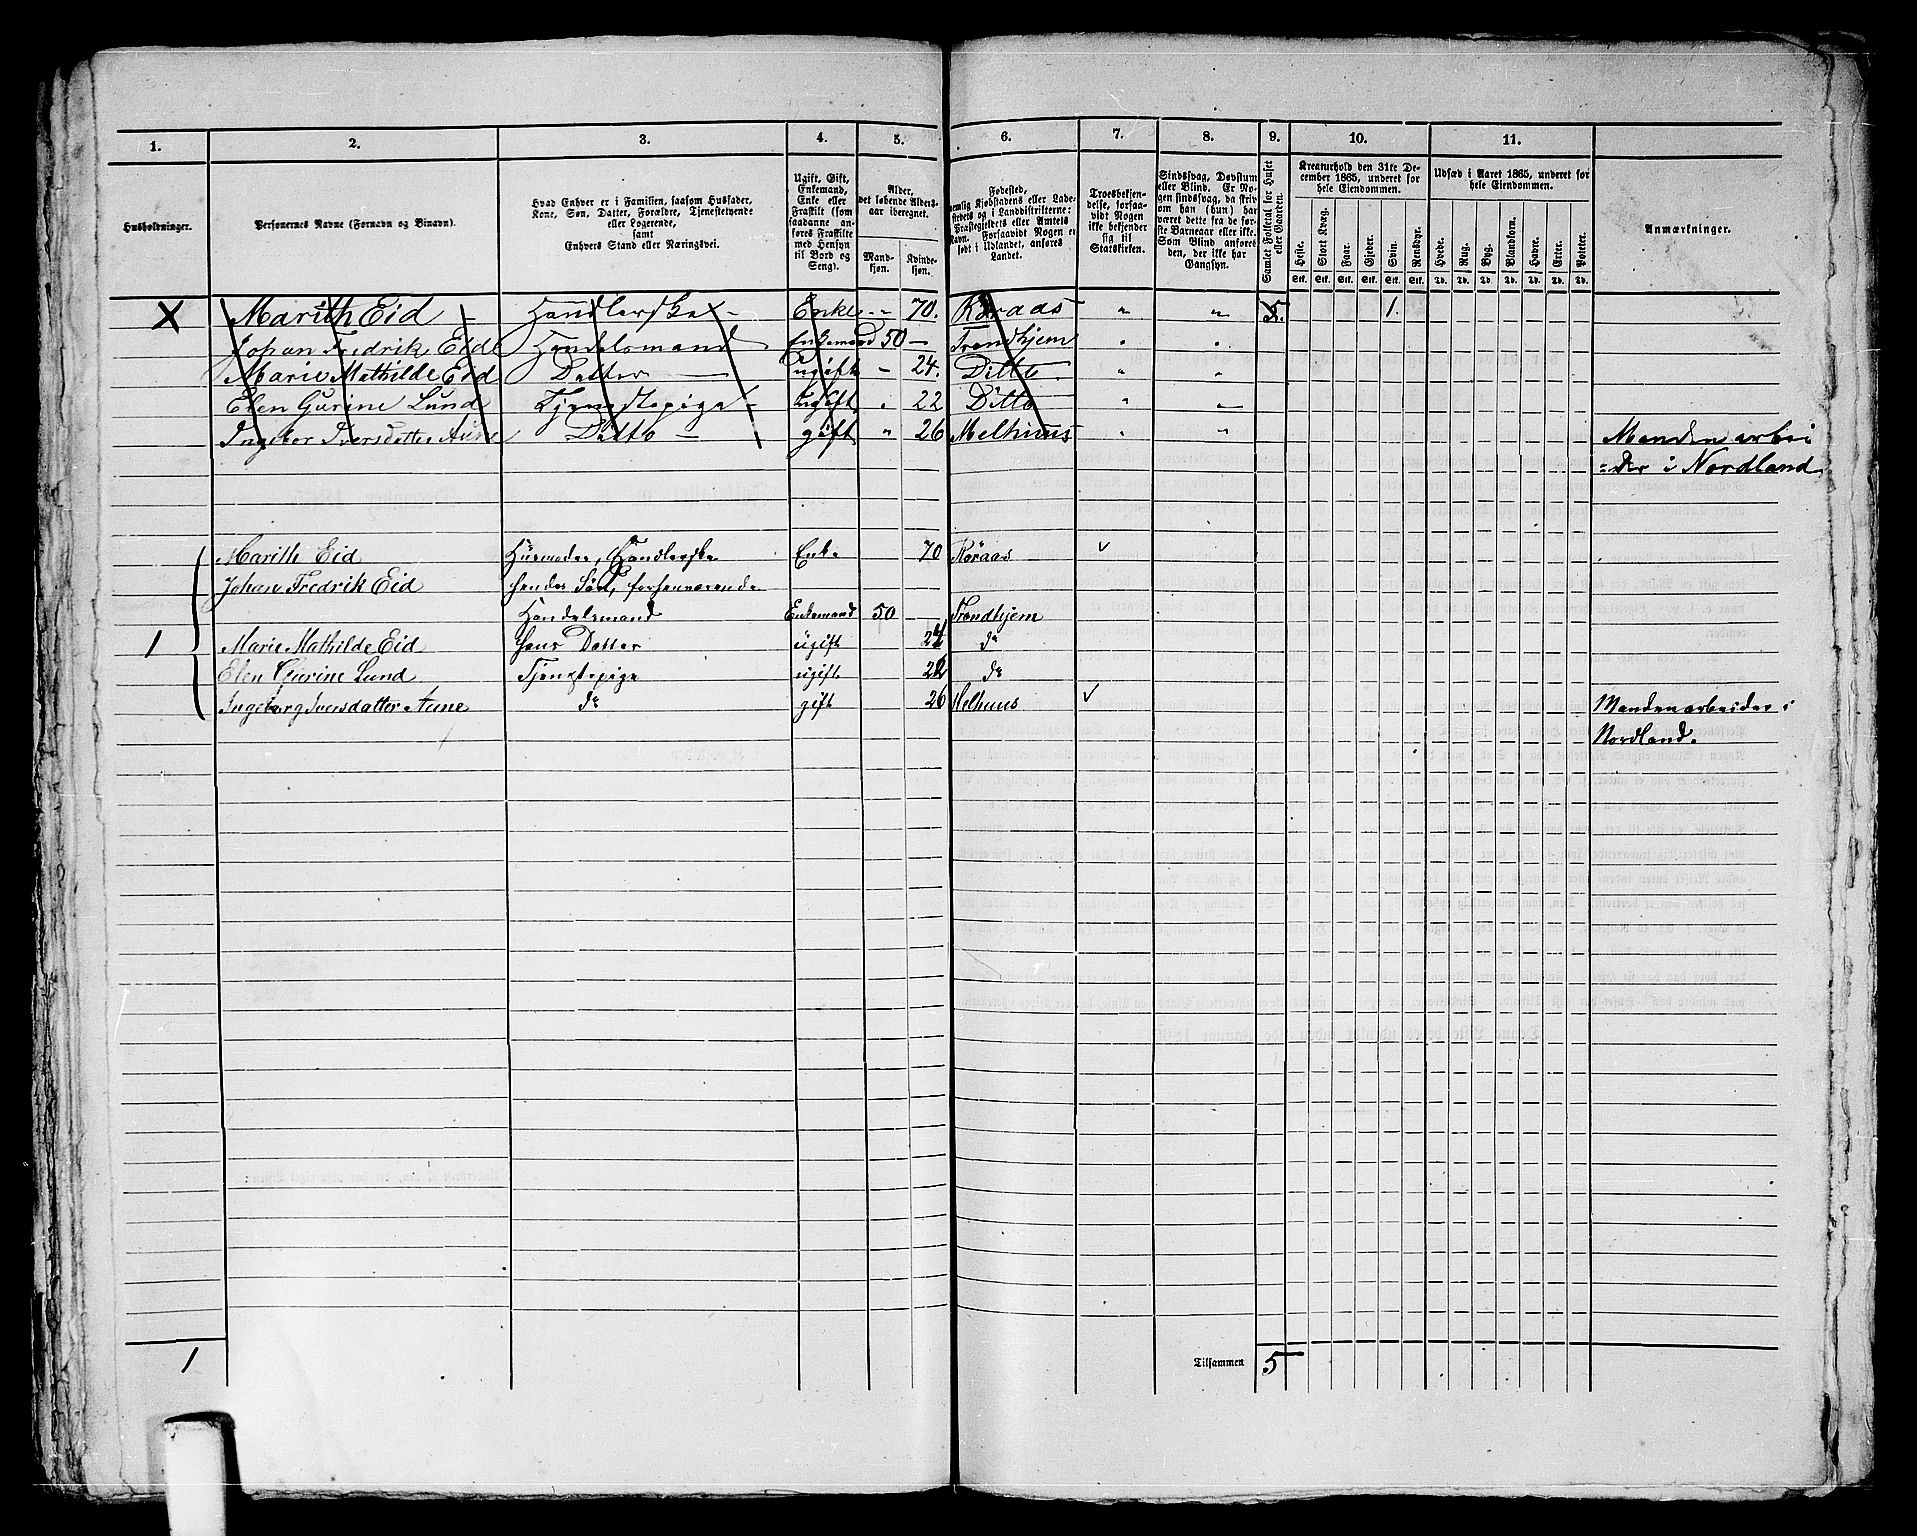 1. 2. 3. 4. 5. 6. 7. 8. 9. 10. 11.
Husholdninger.
Personernes Navne (Fornavn og Binavn).
Hvad Enhver er i Familien, saasom Husfader,
Kone, Søn, Datter, Forældre, Tjenestetyende
eller Logerende,
samt
Enhvers Stand eller Næringsvei.
Ugift, Gift,
Enkemand,
Enke eller
Fraskilt (som
saadanne an-
føres Fraskilte
med Hensyn
til Bord og
Seng).
Alder,
det løbende Alders-
aar iberegnet.
Mand-
kjøn.
Kvinde-
kjøn.
Fødested,
nemlig Kjøbstadens eller Lade-
stedets og i Landdistrikterne:
Præstegjeldets eller Amtets
Navn. Forsaavidt Nogen er
født i Udlandet, anføres
Landet.
Troesbekjen-
delse, forsaa-
vidt Nogen
ikke bekjender
sig til
Statskirken.
Sindssvag, Døvstum
eller Blind. Er No-
gen sindssvag, da skriv
om han (hun) har
været dette fra de før-
ste Barneaar eller ikke.
Som Blind anføres
den, der ikke har
Gangsyn.
Samlet Folketal for Huset
eller Gaarden.
Kreaturhold den 31te De-
cember 1865, underet for
hele Eiendommen.
Heste. Stort Kvæg. Faar. Gjeder. Svin. Rensdyr.
Stk. Stk. Stk. Stk. Stk. Stk.
Udsæd i Aaret 1865, underet for
hele Eiendommen.
Hvede. Rug. Byg. Blandkorn. Havre. Erter. Poteter.
Td. Td. Td. Td. Td. Td. Td.
Anmærkninger.
X Marith Eid - Handlerske - Enke - " 70. Röraas " " 5. 1.
Johan Fredrik Eid Handelsmand Enkemand 50 - Trondhjem " "
Marie Mathilde Eid Datter - ugift - 24. Ditto " "
Elen Gurine Lund Tjenestepige - ugift " 22 Ditto " "
Ingebor Iversdatter Aune Ditto - gift " 26 Melhuus " " Manden arbei
=der i Nordland
Marith Eid Husmoder, Handlerske Enke 70 Röraas
Johan Fredrik Eid hendes Søn, forhenværende
Handelsmand Enkemand 50 Trondhjem
1 Marie Mathilde Eid hans Datter ugift 24 do
Elen Gurine Lund Tjenestepige ugift 22 do
Ingeborg Iversdatter Aune do gift 26 Melhuus Manden arbeider i
Nordland.
1 Tilsammen 5